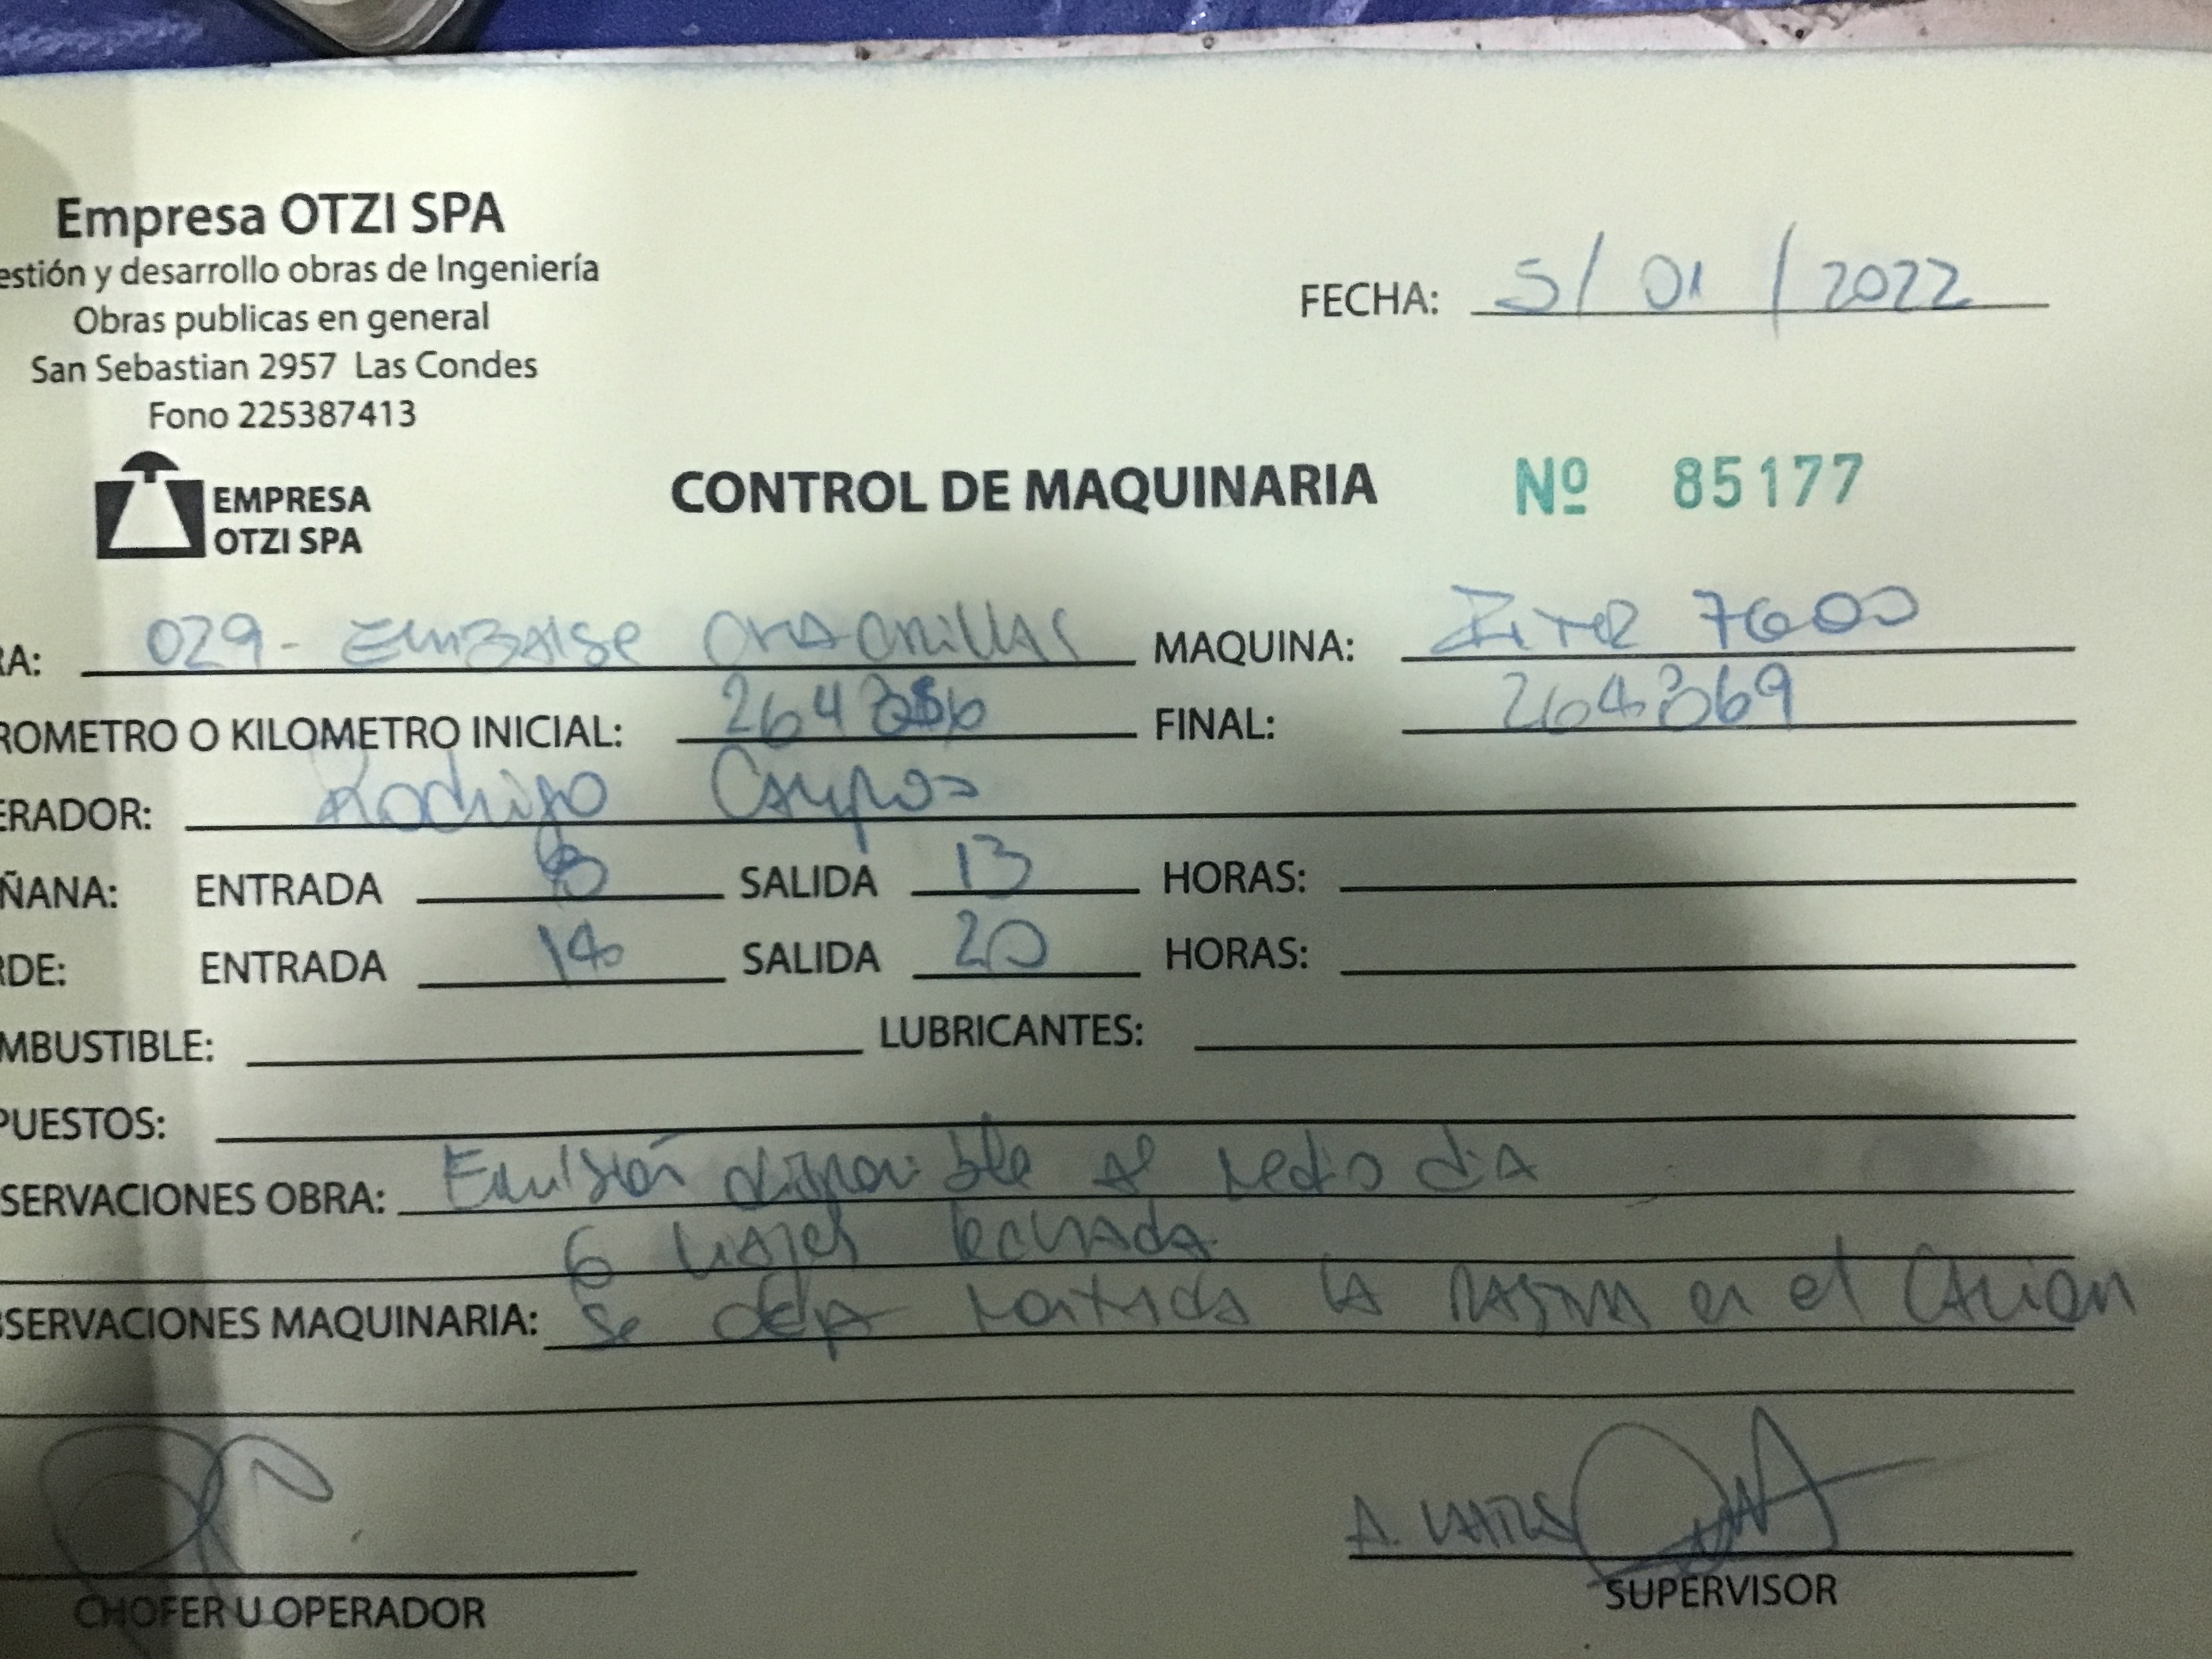 Empresa OTZI SPA
estión y desarrollo obras de Ingeniería
Obras publicas en general
San Sebastian 2957 Las Condes
Fono 225387413
FECHA: 5/01/2022
EMPRESA
OTZI SPA
CONTROL DE MAQUINARIA Nº 85177
RA: 029- Embalse MAQUINA: 7600
ROMETRO O KILOMETRO INICIAL: FINAL: 264.869
ERADOR: Rodrigo Campos
ÑANA: ENTRADA SALIDA 13 HORAS:
RDE: ENTRADA 14 SALIDA 20 HORAS:
MBUSTIBLE: LUBRICANTES:
PUESTOS:
SERVACIONES OBRA: Emulsión al medio dia
6
SERVACIONES MAQUINARIA: Se deja montada la en el camion
CHOFER U OPERADOR
SUPERVISOR